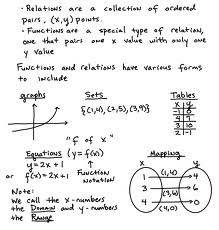 • Relations are a collection of ordered
pairs, (x,y) points.
• Functions are a special type of relation,
one that pairs one x value with only one
y value
Functions and relations have various forms
to include
graphs Sets Tables
{(1,4),(2,5),(3,9)}
x y
4 7
3 10
2 -1
"f of x"
Equations (y=f(x)) Mapping
y=2x+1 Function
or f(x)=2x+1 Notation
x y
1 (1,4) 4
3 (3,6) 6
4 (4,0) 0
Note:
We call the x-numbers
the Domain and y-numbers
the Range